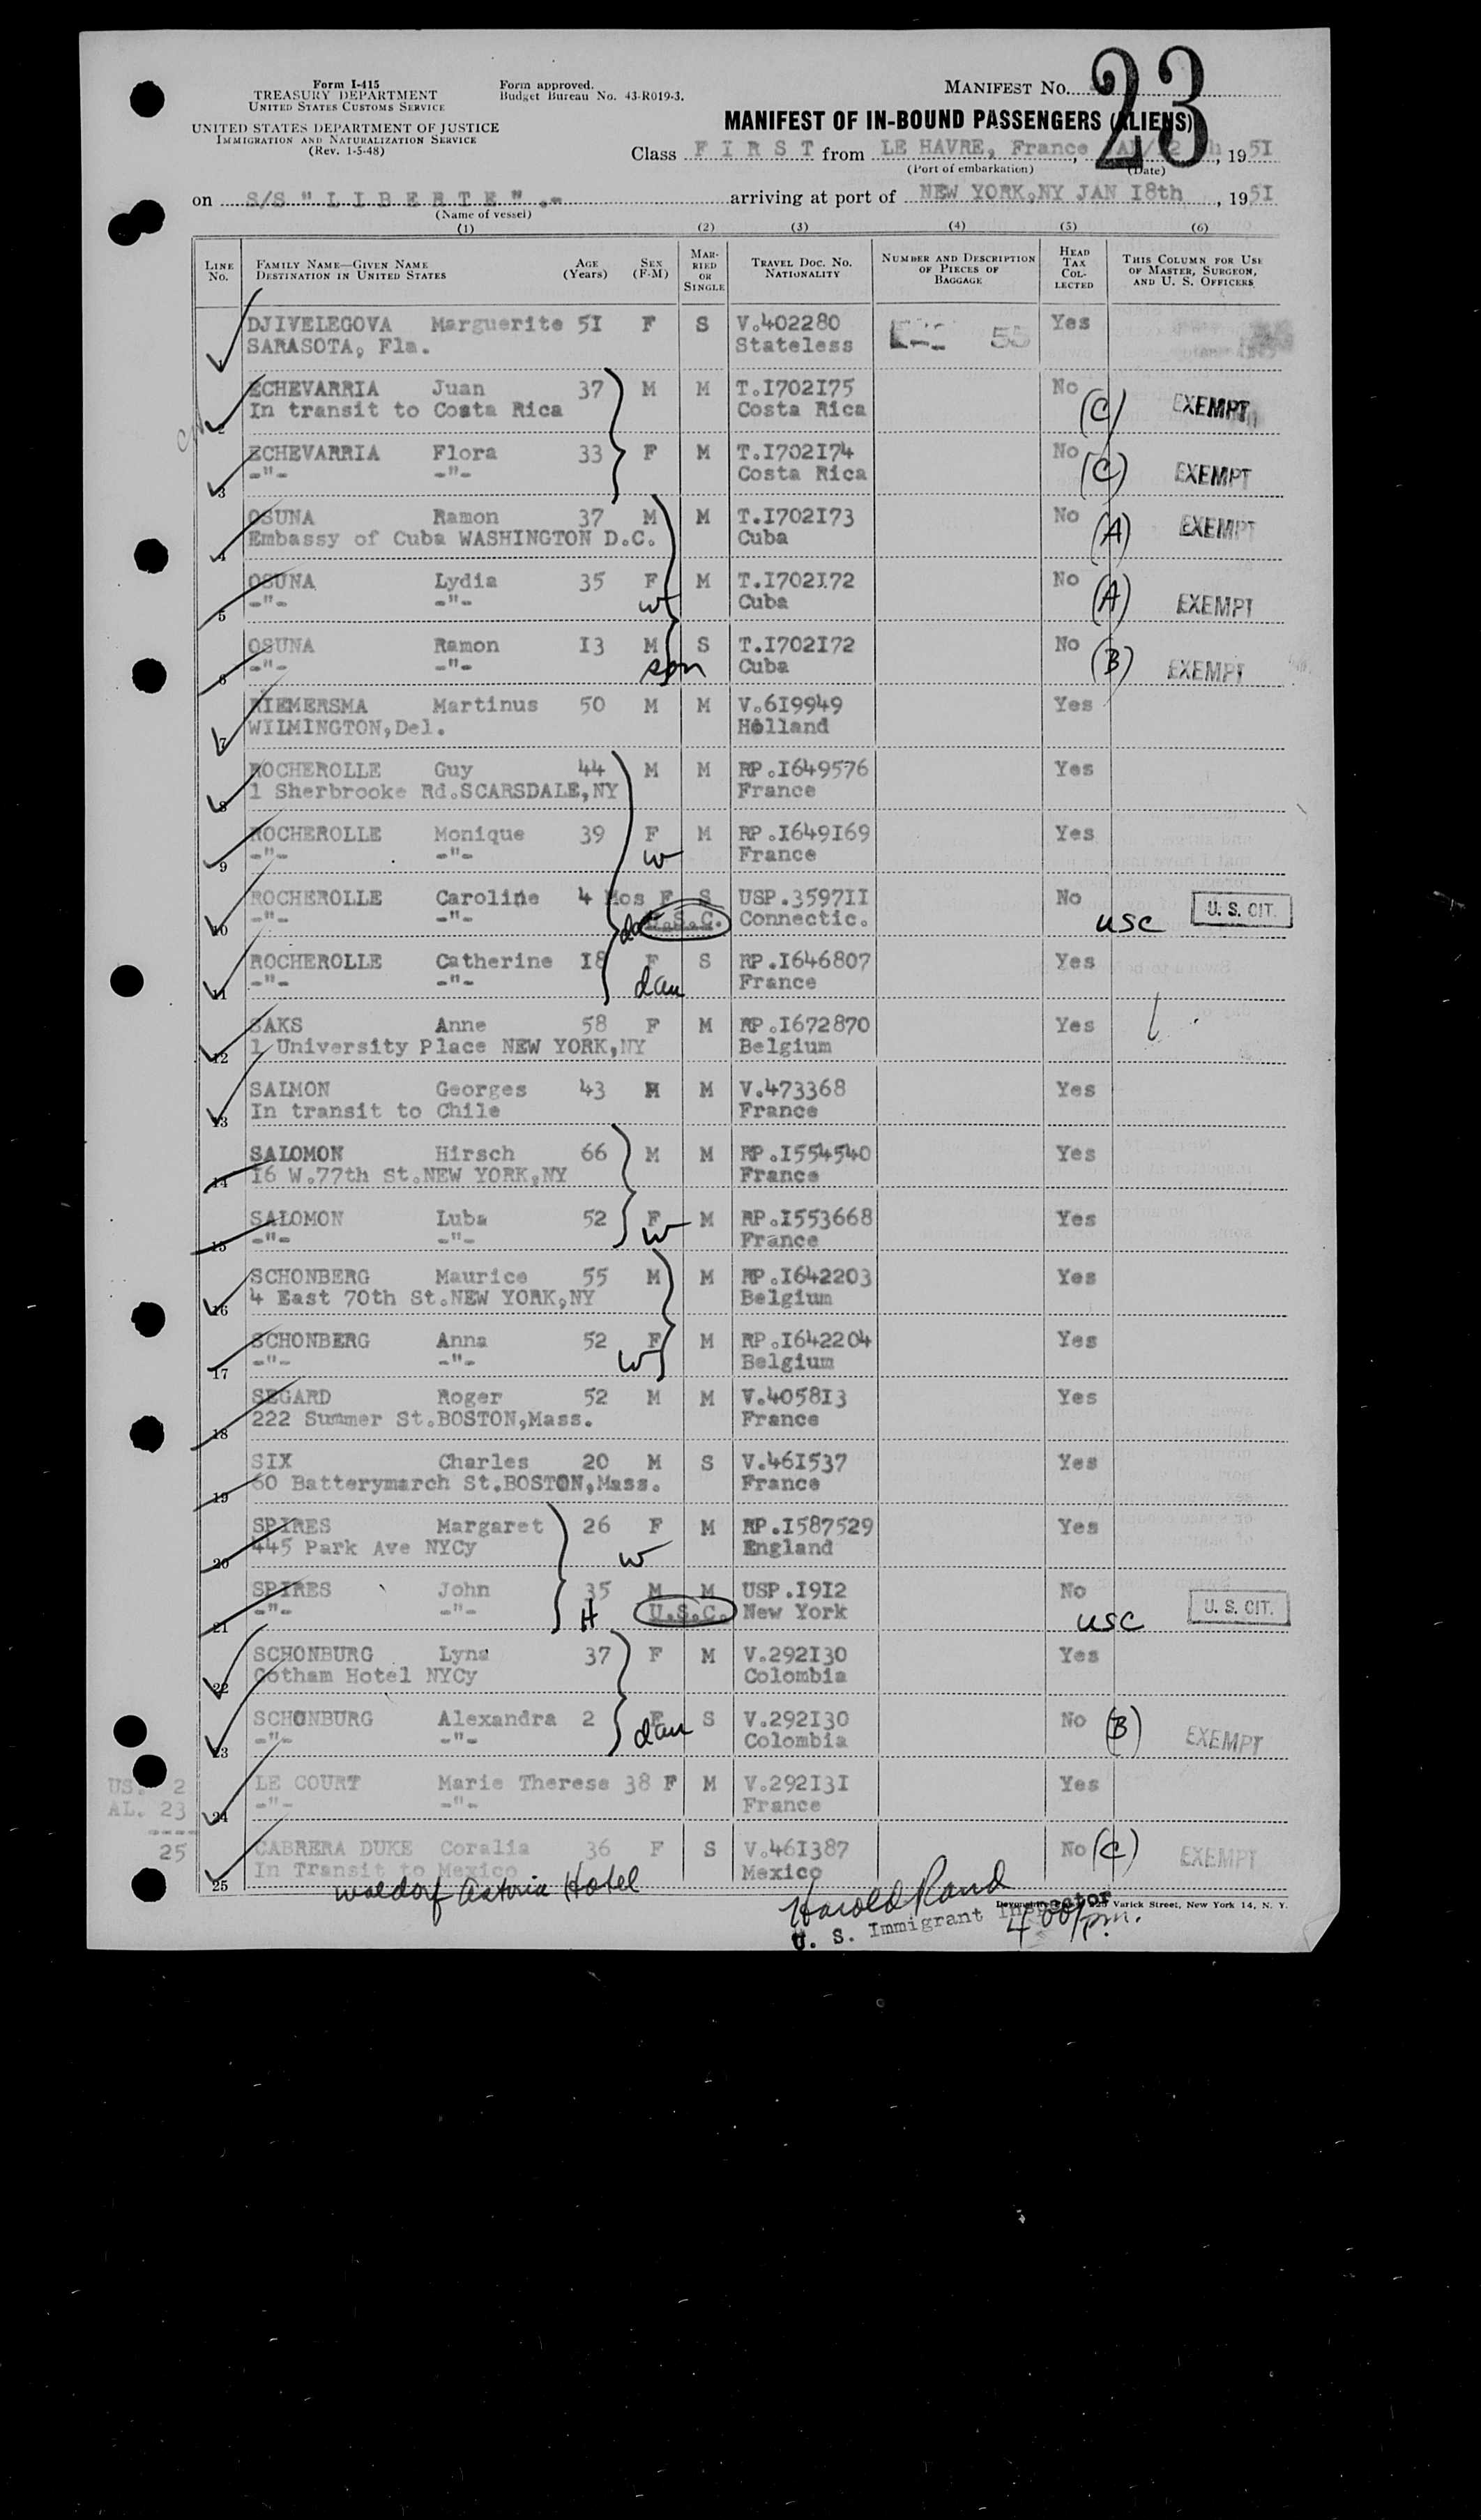 Form I-415
TREASURY DEPARTMENT
UNITED STATES CUSTOMS SERVICE
UNITED STATES DEPARTMENT OF JUSTICE
IMMIGRATION AND NATURALIZATION SERVICE
(Rev. 1-5-48)
Form approved.
Budget Bureau No. 43-R019-3.
MANIFEST NO. 23
MANIFEST OF IN-BOUND PASSENGERS (ALIENS)
Class F I R S T from LE HAVRE, France, , 19 5I
(Port of embarkation) (Date)
on S/S " L I B E R T E " .- arriving at port of NEW YORK,NY JAN I8th , 19 5I
(Name of vessel)
(1) (2) (3) (4) (5) (6)
LINE No. FAMILY NAME—GIVEN NAME DESTINATION IN UNITED STATES AGE (Years) SEX (F-M) MARRIED OR SINGLE TRAVEL DOC. NO. NATIONALITY NUMBER AND DESCRIPTION OF PIECES OF BAGGAGE HEAD TAX COLLECTED THIS COLUMN FOR USE OF MASTER, SURGEON, AND U. S. OFFICERS
DJIVELEGOVA Marguerite 5I F S V.402280 Yes
SARASOTA, Fla. Stateless 55
2 ECHEVARRIA Juan 37 M M T.I702I75 No (C) EXEMPT
In transit to Costa Rica Costa Rica
3 ECHEVARRIA Flora 33 F M T.I702I74 No (C) EXEMPT
-"- -"- Costa Rica
4 OSUNA Ramon 37 M M T.I702I73 No (A) EXEMPT
Embassy of Cuba WASHINGTON D.C. Cuba
5 OSUNA Lydia 35 F M T.I702I72 No (A) EXEMPT
-"- -"- wf Cuba
6 OSUNA Ramon I3 M S T.I702I72 No (B) EXEMPT
-"- -"- son Cuba
7 RIEMERSMA Martinus 50 M M V.6I9949 Yes
WILMINGTON,Del. Holland
8 ROCHEROLLE Guy 44 M M RP.I649576 Yes
1 Sherbrooke Rd.SCARSDALE,NY France
9 ROCHEROLLE Monique 39 F M RP.I649I69 Yes
-"- -"- w France
10 ROCHEROLLE Caroline 4 Mos F S USP.3597II No usc U. S. CIT.
-"- -"- U.S.C. Connectic.
11 ROCHEROLLE Catherine I8 F S RP.I646807 Yes
-"- -"- dau France
12 SAKS Anne 58 F M RP.I672870 Yes
1 University Place NEW YORK,NY Belgium
13 SAIMON Georges 43 M M V.473368 Yes
In transit to Chile France
14 SALOMON Hirsch 66 M M RP.I554540 Yes
I6 W.77th St.NEW YORK,NY France
15 SALOMON Luba 52 F M RP.I553668 Yes
-"- -"- w France
16 SCHONBERG Maurice 55 M M RP.I642203 Yes
4 East 70th St.NEW YORK,NY Belgium
17 SCHONBERG Anna 52 F M RP.I642204 Yes
-"- -"- w Belgium
18 SEGARD Roger 52 M M V.4058I3 Yes
222 Summer St.BOSTON,Mass. France
19 SIX Charles 20 M S V.46I537 Yes
60 Batterymarch St.BOSTON,Mass. France
20 SPIRES Margaret 26 F M RP.I587529 Yes
445 Park Ave NYCy w England
21 SPIRES John 35 M M USP.I9I2 No usc U. S. CIT.
-"- -"- H U.S.C. New York
22 SCHONBURG Lyna 37 F M V.292I30 Yes
Gotham Hotel NYCy Colombia
23 SCHONBURG Alexandra 2 F S V.292I30 No (B) EXEMPT
-"- -"- dau Colombia
24 LE COURT Marie Therese 38 F M V.292I3I Yes
-"- -"- France
US. 2
AL. 23
----
25
25 CABRERA DUKE Coralia 36 F S V.46I387 No (C) EXEMPT
In Transit to Mexico Mexico
Waldorf Astoria Hotel
Harold Rand
U. S. Immigrant Inspector
Varick Street, New York 14, N. Y.
4 00/pm.